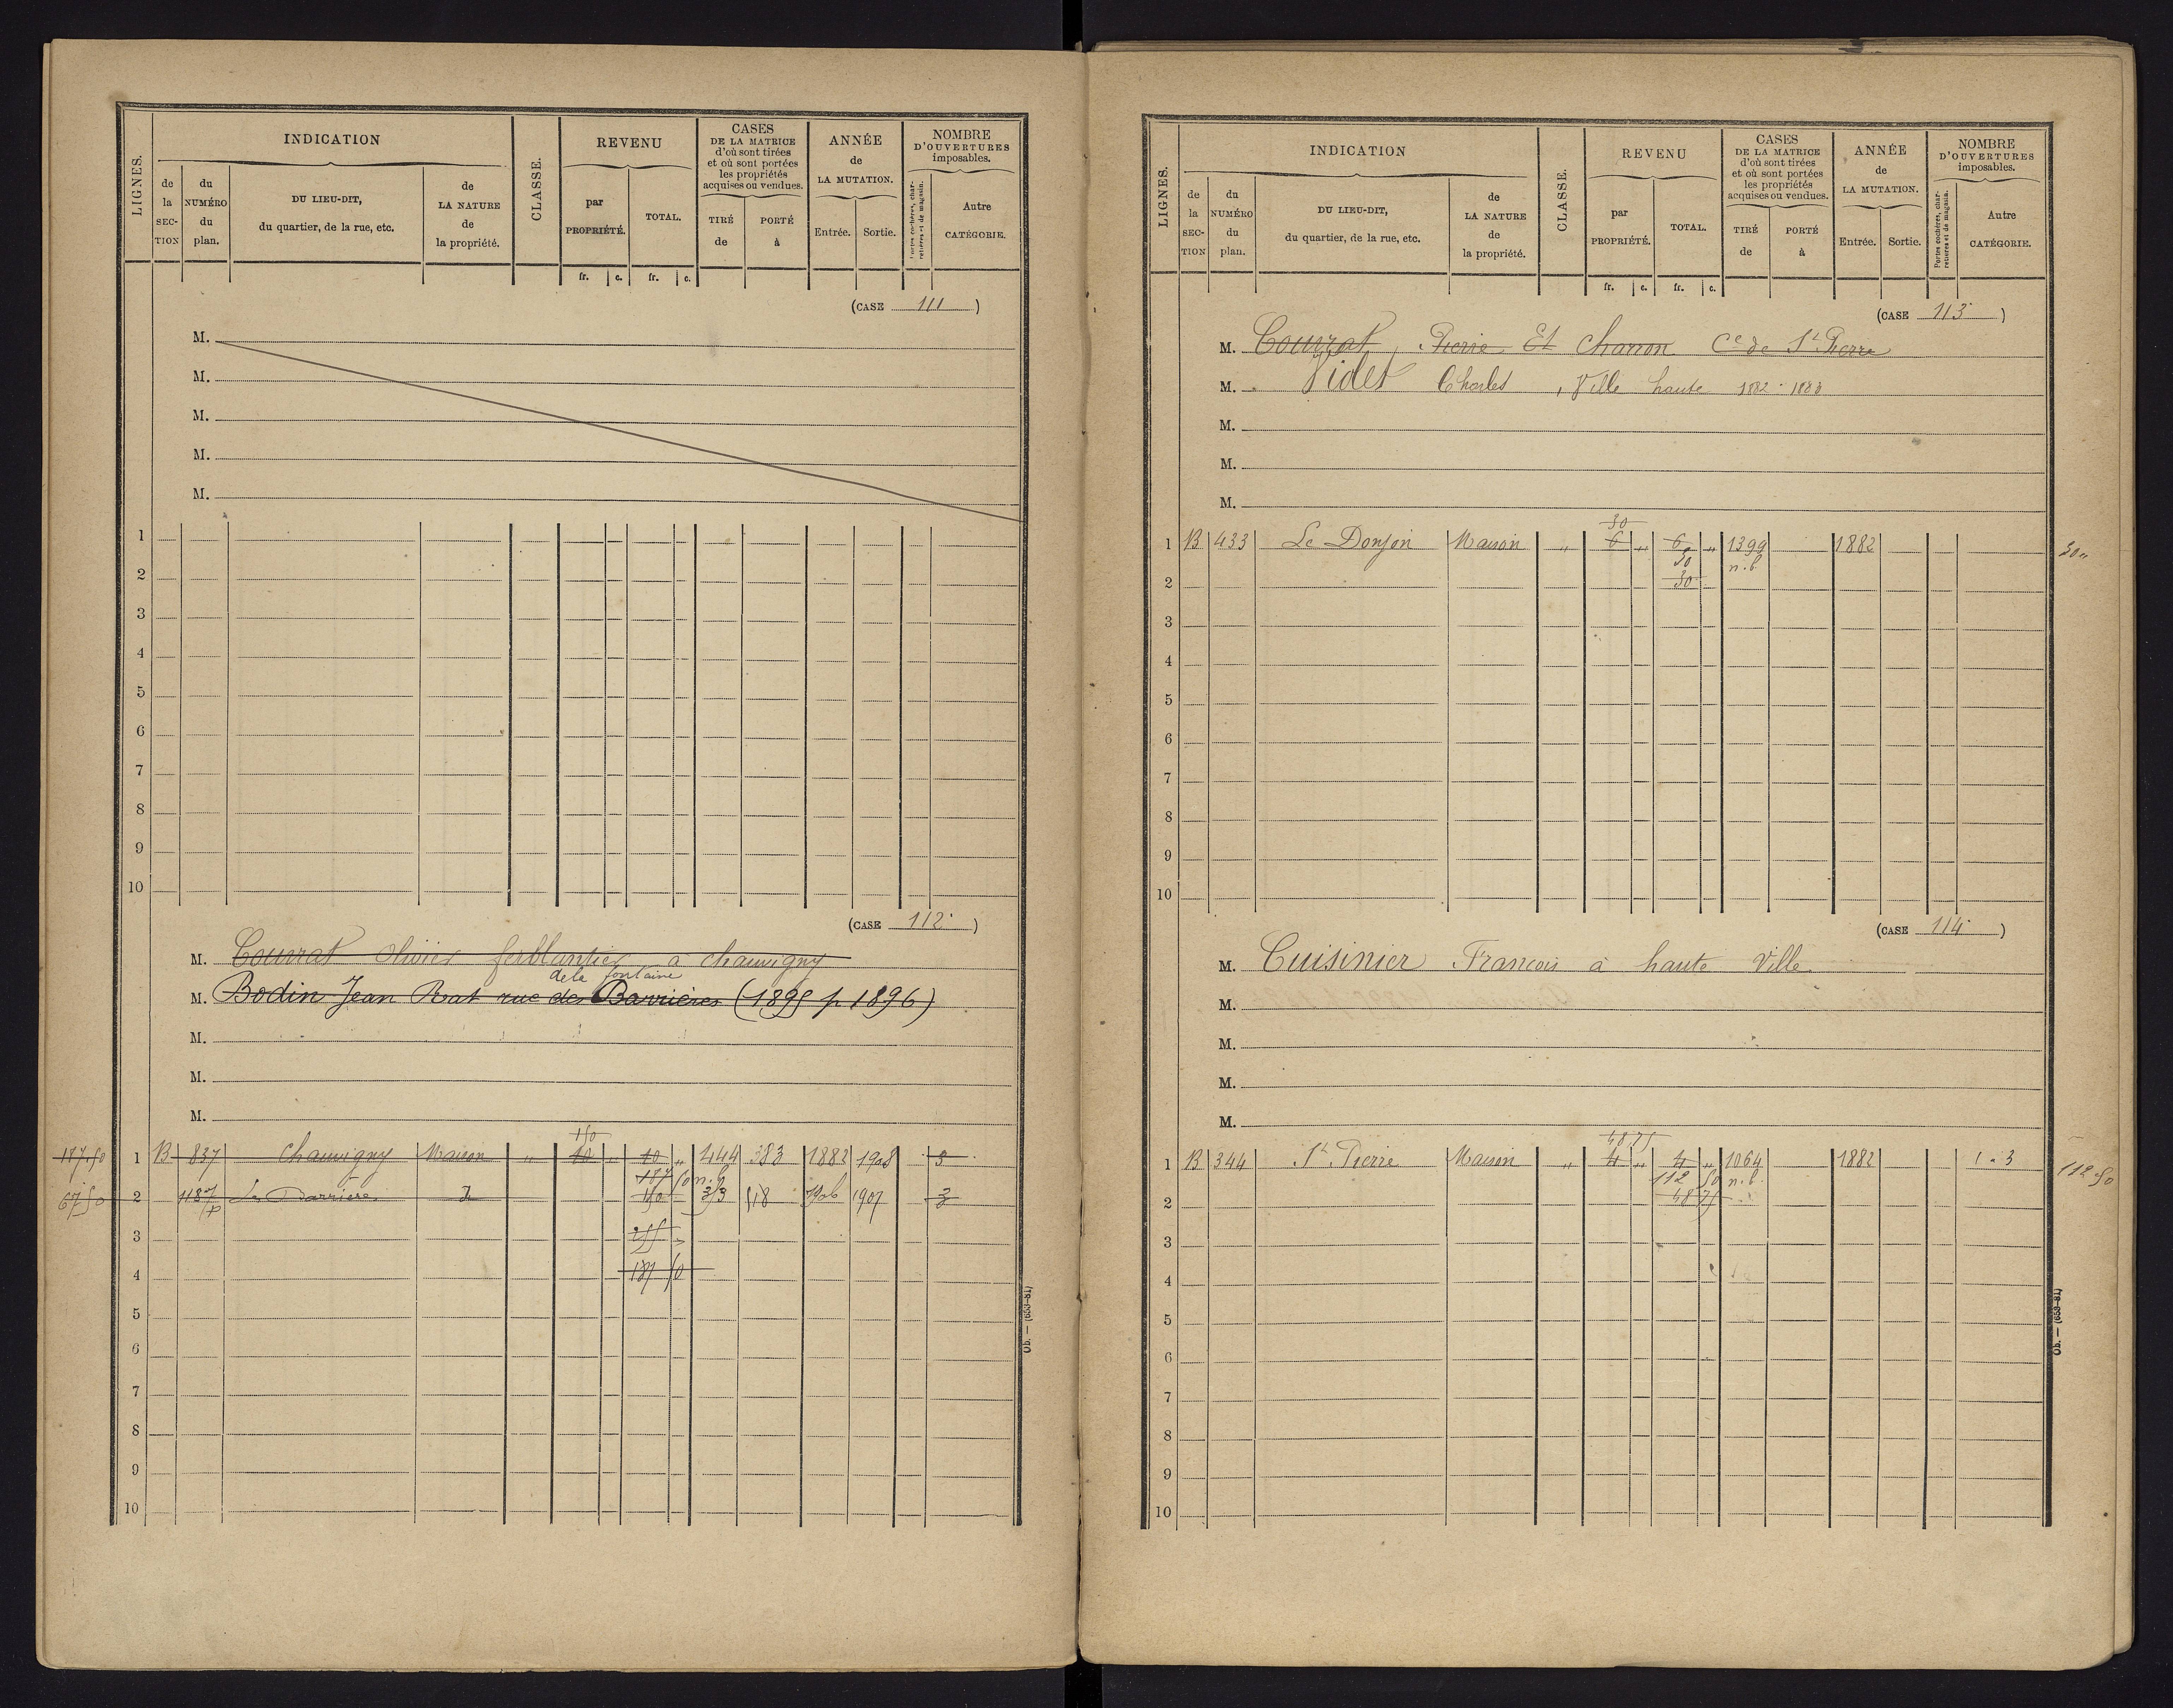 LIGNES.
INDICATION
de la SECTION
du NUMÉRO du plan.
DU LIEU-DIT, du quartier, de la rue, etc.
de LA NATURE de la propriété.
CLASSE.
REVENU
par PROPRIÉTÉ.
TOTAL.
fr. c. fr. c.
CASES DE LA MATRICE d'où sont tirées et où sont portées les propriétés acquises ou vendues.
TIRÉ de
PORTÉ à
ANNÉE de LA MUTATION.
Entrée. Sortie.
NOMBRE D'OUVERTURES imposables.
Portes cochères, charretières et de magasin.
Autre CATÉGORIE.
(CASE 111)
M.
M.
M.
M.
M.
1
2
3
4
5
6
7
8
9
10
(CASE 112)
M. Courrat Olivier ferblantier à chauvigny
de la fontaine
M. Bodin Jean Rat rue des Barrières (1895 p 1896)
M.
M.
M.
150
187.50 1 B 837 Chauvigny Maison " 40 " 40 " 444 383 1882 1908 3
187 50 n.b
67 50 2 1187 p La Barrière d 150 313 518 1906 1907 3
3 255
4 187 50
5
6
7
8
9
10
Ob. — (653-81)
LIGNES.
INDICATION
de la SECTION
du NUMÉRO du plan.
DU LIEU-DIT, du quartier, de la rue, etc.
de LA NATURE de la propriété.
CLASSE.
REVENU
par PROPRIÉTÉ.
TOTAL.
fr. c. fr. c.
CASES DE LA MATRICE d'où sont tirées et où sont portées les propriétés acquises ou vendues.
TIRÉ de
PORTÉ à
ANNÉE de LA MUTATION.
Entrée. Sortie.
NOMBRE D'OUVERTURES imposables.
Portes cochères, charretières et de magasin.
Autre CATÉGORIE.
(CASE 113)
M. Courrat Pierre Et Charron Ce de St Pierre
M. Videt Charles, Ville haute 1882 - 1883
M.
M.
M.
30
1 B 433 Le Donjon Maison " 6 " 6 " 1399 1882 30 "
50 n.b
2 30
3
4
5
6
7
8
9
10
(CASE 114)
M. Cuisinier François à haute Ville
M.
M.
M.
M.
48.75
1 B 344 St Pierre Maison " 4 " 4 " 1064 1882 1.3 112 50
112 50 n.b
2 48 75
3
4
5
6
7
8
9
10
Ob. — (653-81)